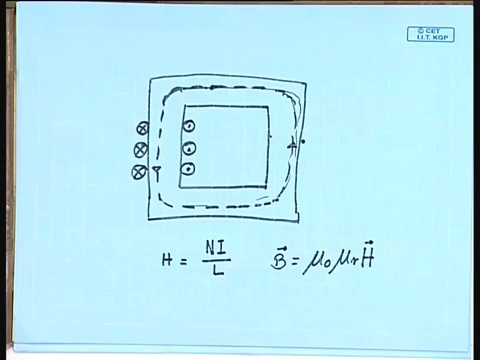 © CET
I.I.T. KGP
H = NI / L
B⃗ = μ₀ μᵣ H⃗